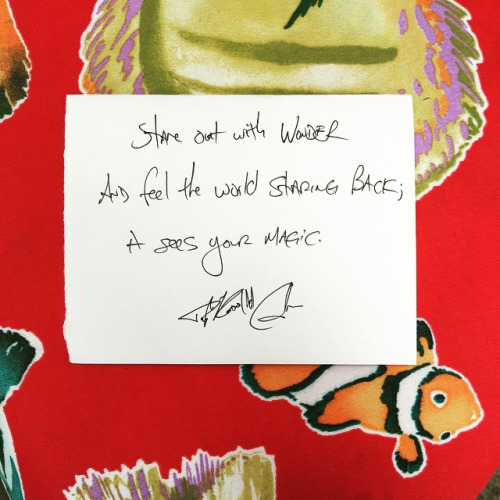 Stare out with WONDER
AND feel the world STARING BACK;
it sees your MAGIC.